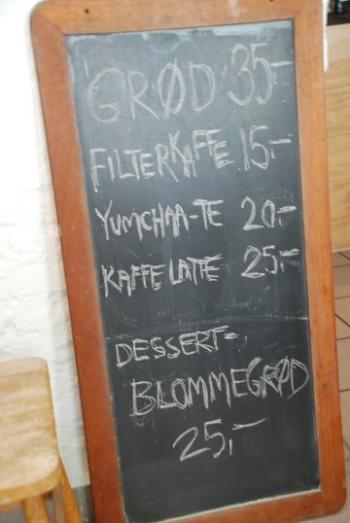 GRØD 35-
FILTERKAFFE 15,-
YUMCHAA-TE 20,-
KAFFE LATTE 25,-
DESSERT-
BLOMMEGRØD
25,-